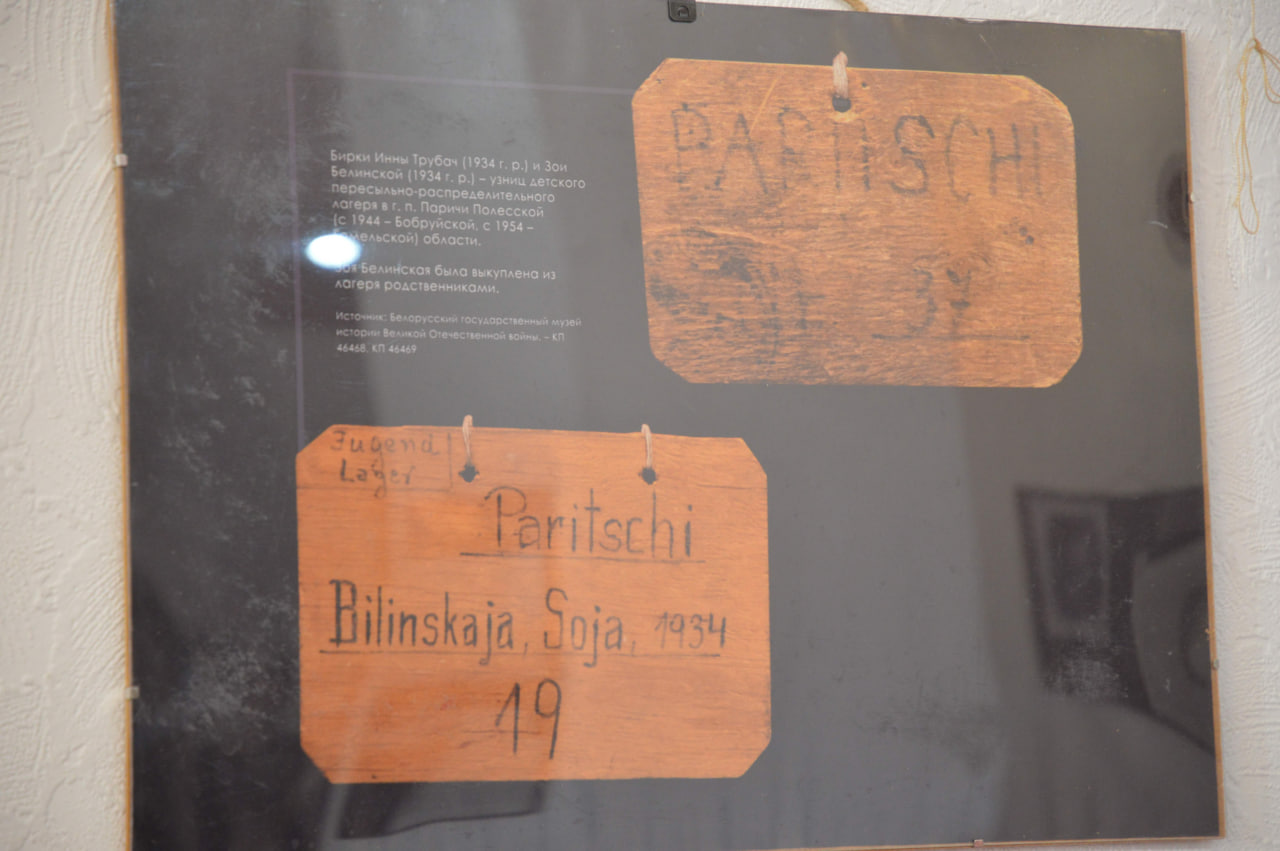 Бирки Инны Трубач (1934 г. р.) и Зои
Белинской (1934 г. р.) – узниц детского
пересыльно-распределительного
лагеря в г. п. Паричи Полесской
(с 1944 – Бобруйской, с 1954 –
Гомельской) области.
Зоя Белинская была выкуплена из
лагеря родственниками.
Источник: Белорусский государственный музей
истории Великой Отечественной войны. – КП
46468, КП 46469
PARITSCHI
Jugend
Lager
Paritschi
Bilinskaja, Soja, 1934
19